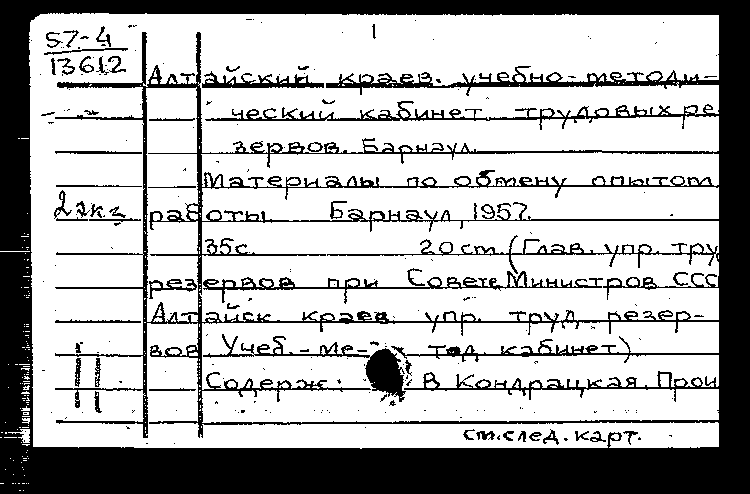 57-4
13612
1
Алтайский краев. учебно-методи-
ческий кабинет трудовых ре
зервов. Барнаул.
Материалы по обмену опытом
2 экз
работы Барнаул, 1957.
35с. 20 ст. (Глав. упр. тру
резервов при Совете Министров ССС
Алтайск. краев. упр. труд. резер-
вов Учеб.-ме- тод. кабинет)
Содерж: В Кондрацкая. Прои
ст.след.карт.